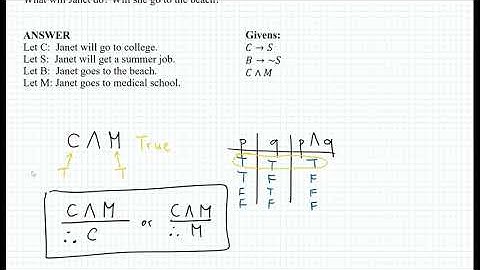 What will Janet do? Will she go to the beach?
ANSWER
Let C: Janet will go to college.
Let S: Janet will get a summer job.
Let B: Janet goes to the beach.
Let M: Janet goes to medical school.
Givens:
C → S
B → ~S
C ∧ M
C ∧ M True
T T
p q p ∧ q
T T T
T F F
F T F
F F F
C ∧ M or C ∧ M
∴ C ∴ M